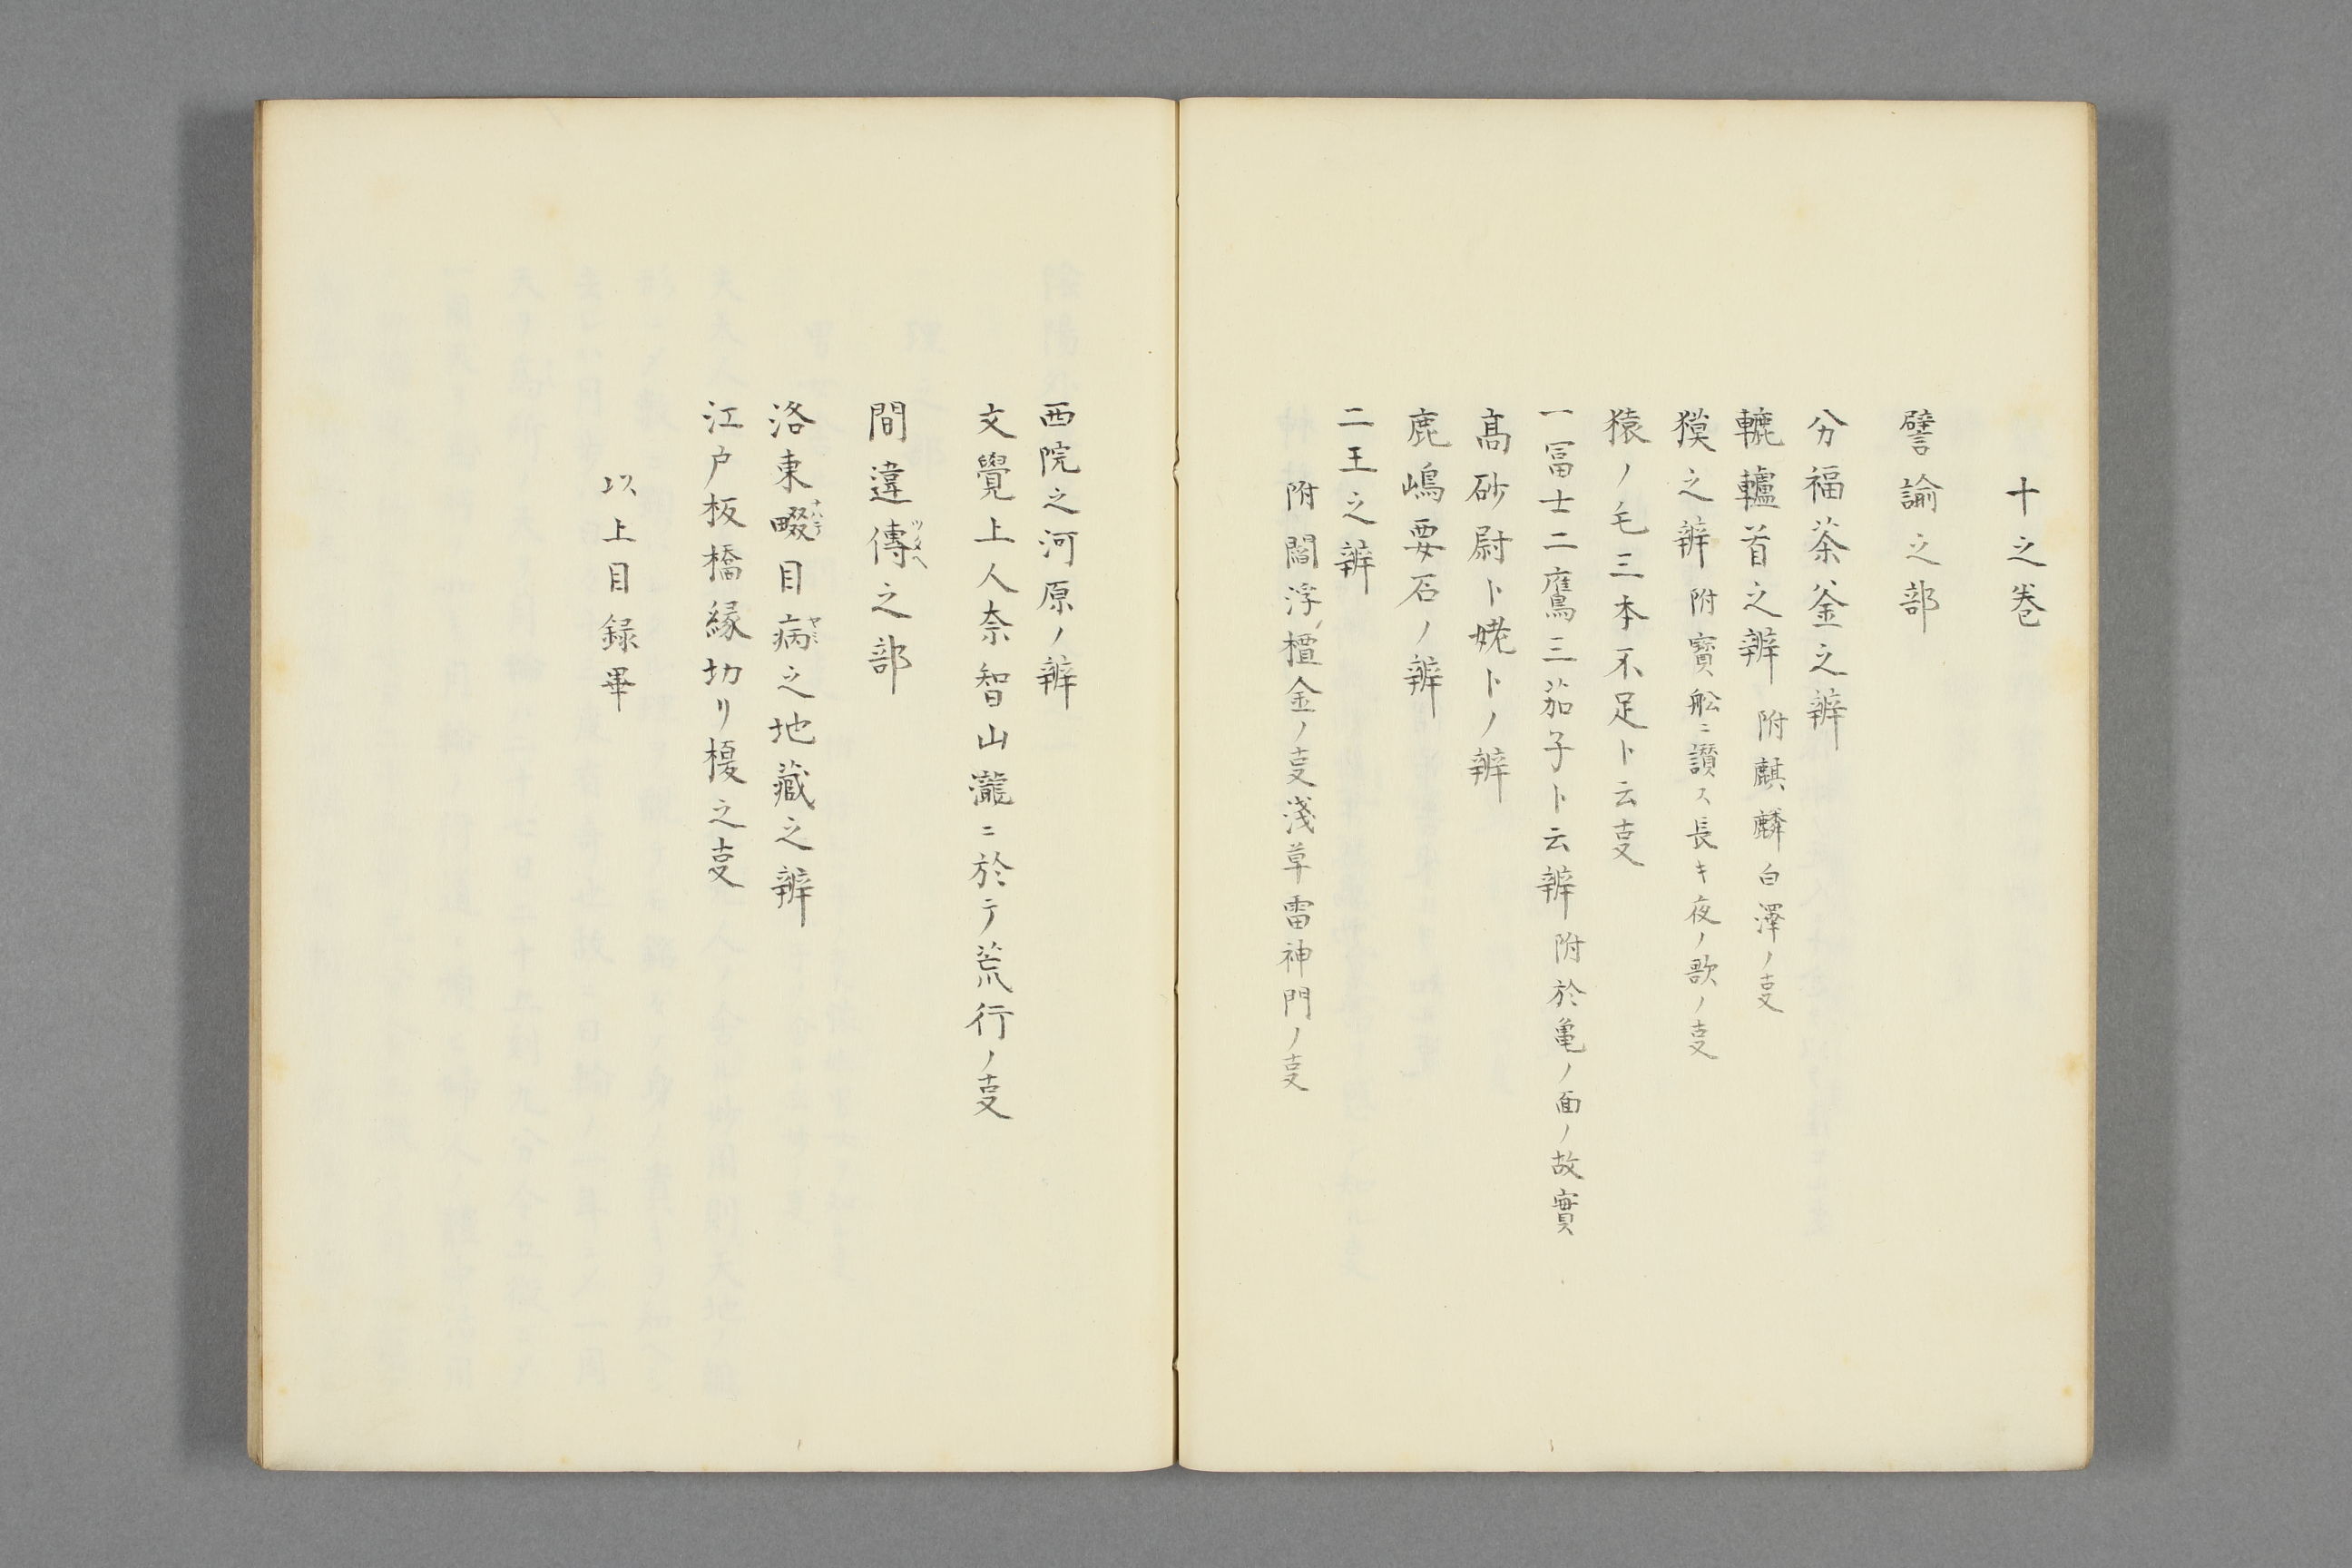 十之巻
譬諭之部
分福茶釜之辨
轆轤首之辨 附麒麟白澤ノ㕝
獏之辨 附寳舩ニ讃ス長キ夜ノ歌ノ㕝
猿ノ毛三本不足ト云㕝
一冨士二鷹三茄子ト云辨 附於亀ノ面ノ故實
髙砂尉ト姥トノ辨
鹿嶋要石ノ辨
二王之辨
附閻浮檀金ノ㕝淺草雷神門ノ㕝
西院之河原ノ辨
文覺上人奈智山瀧ニ於テ荒行ノ㕝
間違傳之部
洛東畷目病之地藏之辨
江戸板橋縁切リ榎之㕝
以上目録畢